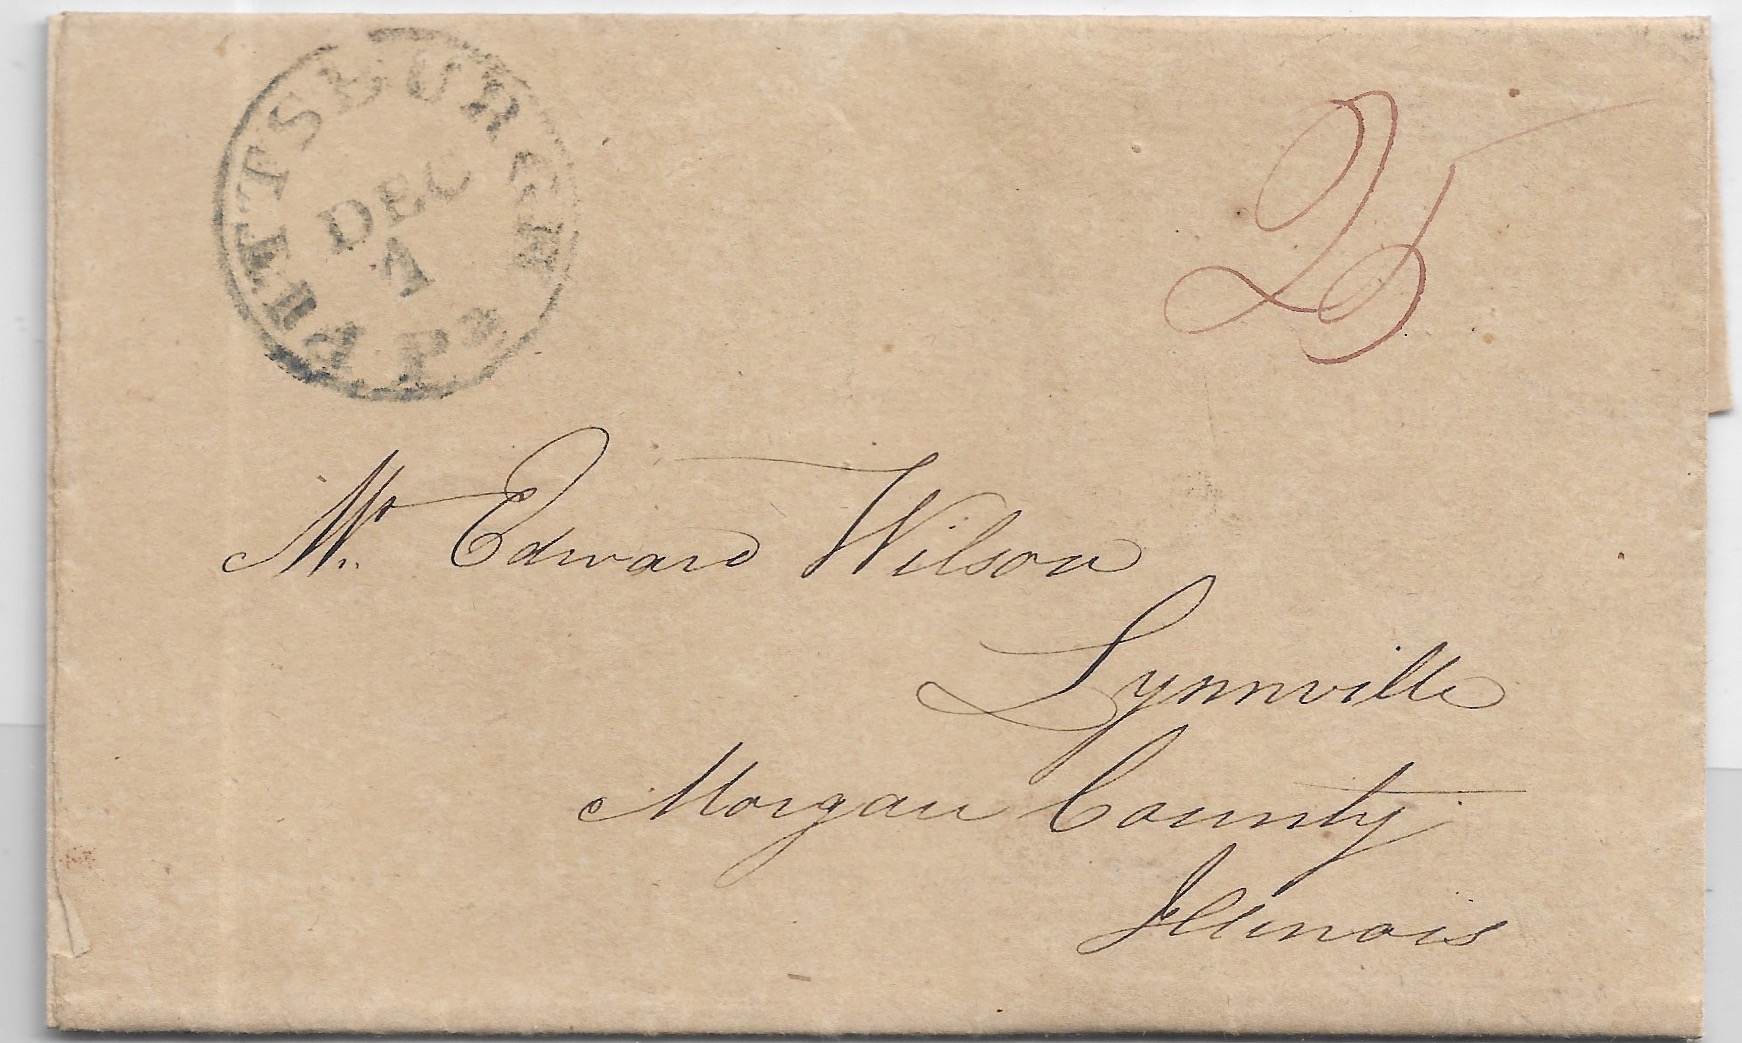 PITTSBURGH Pa
DEC
25
Mr. Edward Wilson
Lynnville
Morgan County
Illinois